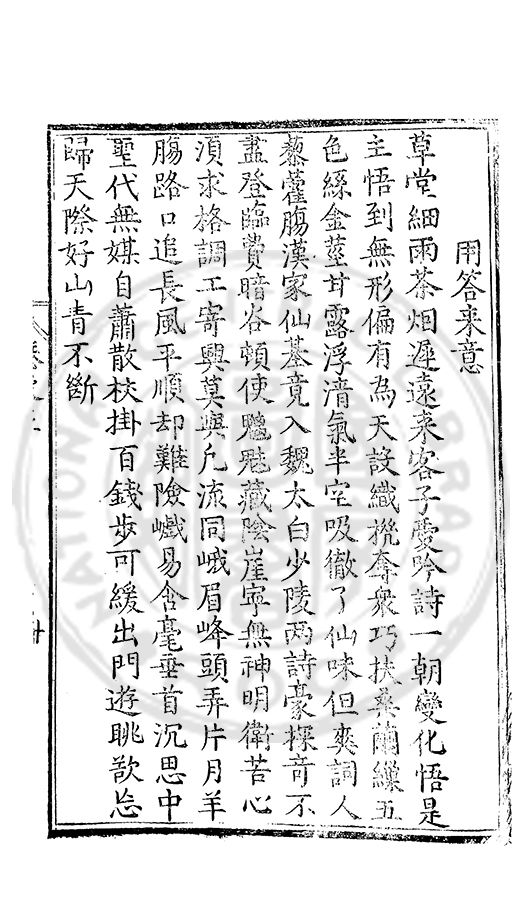 用答来意
草堂細雨茶烟遲遠来客子愛吟詩一朝變化悟是
主悟到無形偏有為天設織㧞奪衆巧扶桑繭繅五
色絲金莖甘露浮淯氣半空吸徹了仙味但爽詞人
藜藿腸漢家仙基竟入魏太白少陵兩詩豪探竒不
盡登臨費暗谷頓使魑魅藏陰崖寧無神明衛苦心
湏求格調工寄興莫與凡流同峨眉峰頭弄片月羊
腸路口追長風平順却難險巇易含毫垂首沉思中
聖代無媒自蕭散杖掛百錢步可緩出門遊眺歆㤀
歸天際好山青不斷